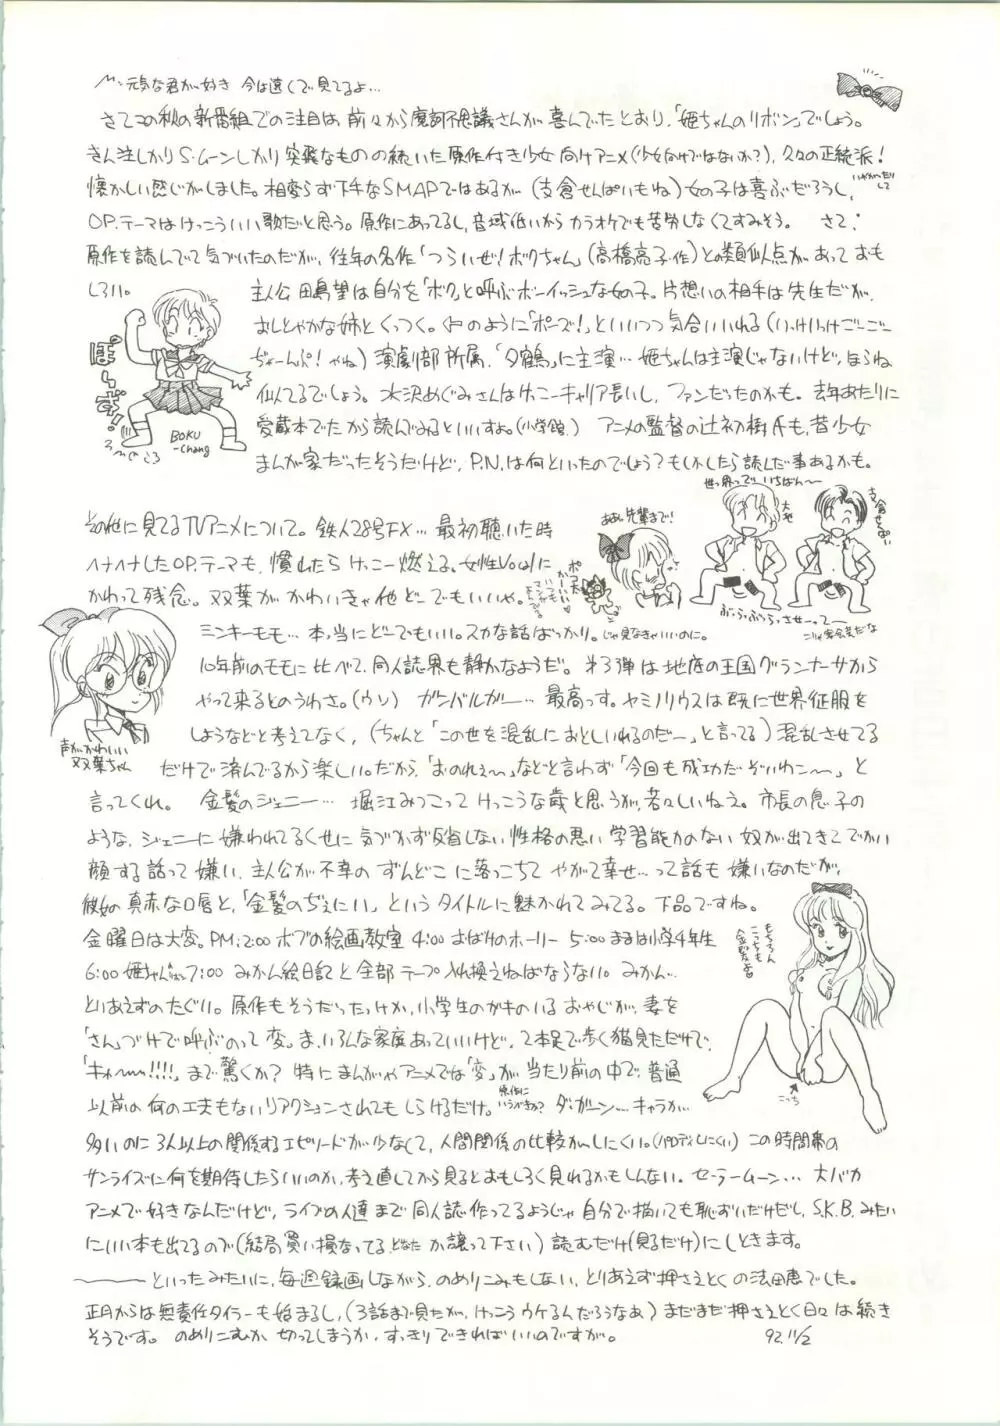 〽元気な君が好き 今は遠くで見てるよ…
さてこの秋の新番組での注目は、前々から魔訶不思議さんが喜んでたとおり、「姫ちゃんのリボン」でしょう。
きん注しかりS・ムーンしかり 突飛なものの続いた原作付き少女向けアニメ(少女向けではないか?)、久々の正統派!
懐かしい感じがしました。相変らず下手なSMAPではあるが(支倉せんぱいもね)女の子は喜ぶだろうし、
OP.テーマはけっこういい歌だと思う。原作にあってるし、音域低いからカラオケでも苦労しなくてすみそう。 さて、
原作を読んでて気づいたのだが、往年の名作「つらいぜ!ボクちゃん」(高橋亮子・作)との類似点があっておも
しろい。
主人公 田島望は自分を「ボク」と呼ぶボーイッシュな女の子。片想いの相手は先生だが、
おしとやかな姉とくっつく。のように「ポーズ!」といいつつ気合いいれる(いけいけごーごー
ぢゃーんぷ!やね)演劇部所属、「夕鶴」に主演…姫ちゃんは主演じゃないけど、ほらね
似てるでしょう。水沢めぐみさんはけっこーキャリア長いし、ファンだったのかも。去年あたりに
愛蔵本でたから読んでみるといいすよ。(小学館) アニメの監督の辻初樹氏も、昔少女
まんが家だったそうだけど、P.N.は何といったのでしょう?もしかしたら読んだ事あるかも。
ぽーずぅ!
BOKU
-chang
世っ界ってーいちばん〜
大地
支倉せんぱい
ああっ先輩まで!
その他に見てるTVアニメについて。鉄人28号FX…最初聴いた時
ハナハナしたOP.テーマも、慣れたらけっこー燃える。女性Vo.に
かわって残念。双葉がかわいきゃ他どーでもいいや。
ミンキーモモ…本当にどーでもいい。スカな話ばっかり。じゃ見なきゃいいのに。
10年前のモモに比べて、同人誌界も静かなようだ。第3弾は地底の王国グランナーサから
やって来るとのうわさ。(ウソ) ガンバルガー…最高っす。ヤミノリウスは既に世界征服を
しようなどと考えてなく、(ちゃんと「この世を混乱におとしいれるのだー」と言ってる)混乱させてる
だけで済んでるから楽しい。だから「おのれぇ〜」などと言わず「今回も成功だぞいわこ〜ん」と
声がかわいい
双葉ちゃん
言ってくれ。 金髪のジェニー… 堀江みつこってけっこうな歳と思うが、若々しいねえ。市長の息子の
ような、ジェニーに嫌われてるくせに気づかず反省しない性格の悪い学習能力のない奴が出てきてでかい
顔する話って嫌い。主人公が不幸のずんどこに落っこちてやがて幸せ…って話も嫌いなのだが、
彼女の真赤な口唇と、「金髪のぢぇにい」というタイトルに魅かれてみてる。下品ですね。
金曜日は大変。PM:2:00 ボブの絵画教室 4:00 おばけのホーリー 5:00 まるは小学4年生
6:00 姫ちゃん 7:00 みかん絵日記と全部テープ入れ換えねばならない。みかん…
とりあえずのたぐい。原作もそうだったっけか、小学生のガキのいるおやじが、妻を
「さん」づけで呼ぶのって変。ま、いろんな家庭あっていいけど、2本足で歩く猫見ただけで、
「キャ〜!!!!」まで驚くか? 特にまんがやアニメでは「変」が当たり前の中で、普通
以前の何の工夫もないリアクションされてもしらけるだけ。 ダ・ガーン…キャラが
多いのに3人以上の関係するエピソードが少なくて、人間関係の比較がしにくい。(パロディしにくい) この時間帯の
サンライズに何を期待したらいいのか、考え直してから見るとおもしろく見れるかもしんない。セーラームーン…大バカ
アニメで好きなんだけど、ライブの人達まで同人誌作ってるようじゃ自分で描いても恥ずいだけだし、S.K.B.みたい
にいい本も出てるので(結局買い損なってる、どなたか譲って下さい)読むだけ(見るだけ)にしときます。
〜といったみたいに、毎週録画しながら、のめりこみもしない、とりあえず押さえとくの法田恵でした。
正月からは無責任タイラーも始まるし、(3話まで見たが、けっこうウケるんだろうなあ)まだまだ押さえとく日々は続き
そうです。 のめりこむか切ってしまうか、すっきりできればいいのですが。 92.11/2
こっち